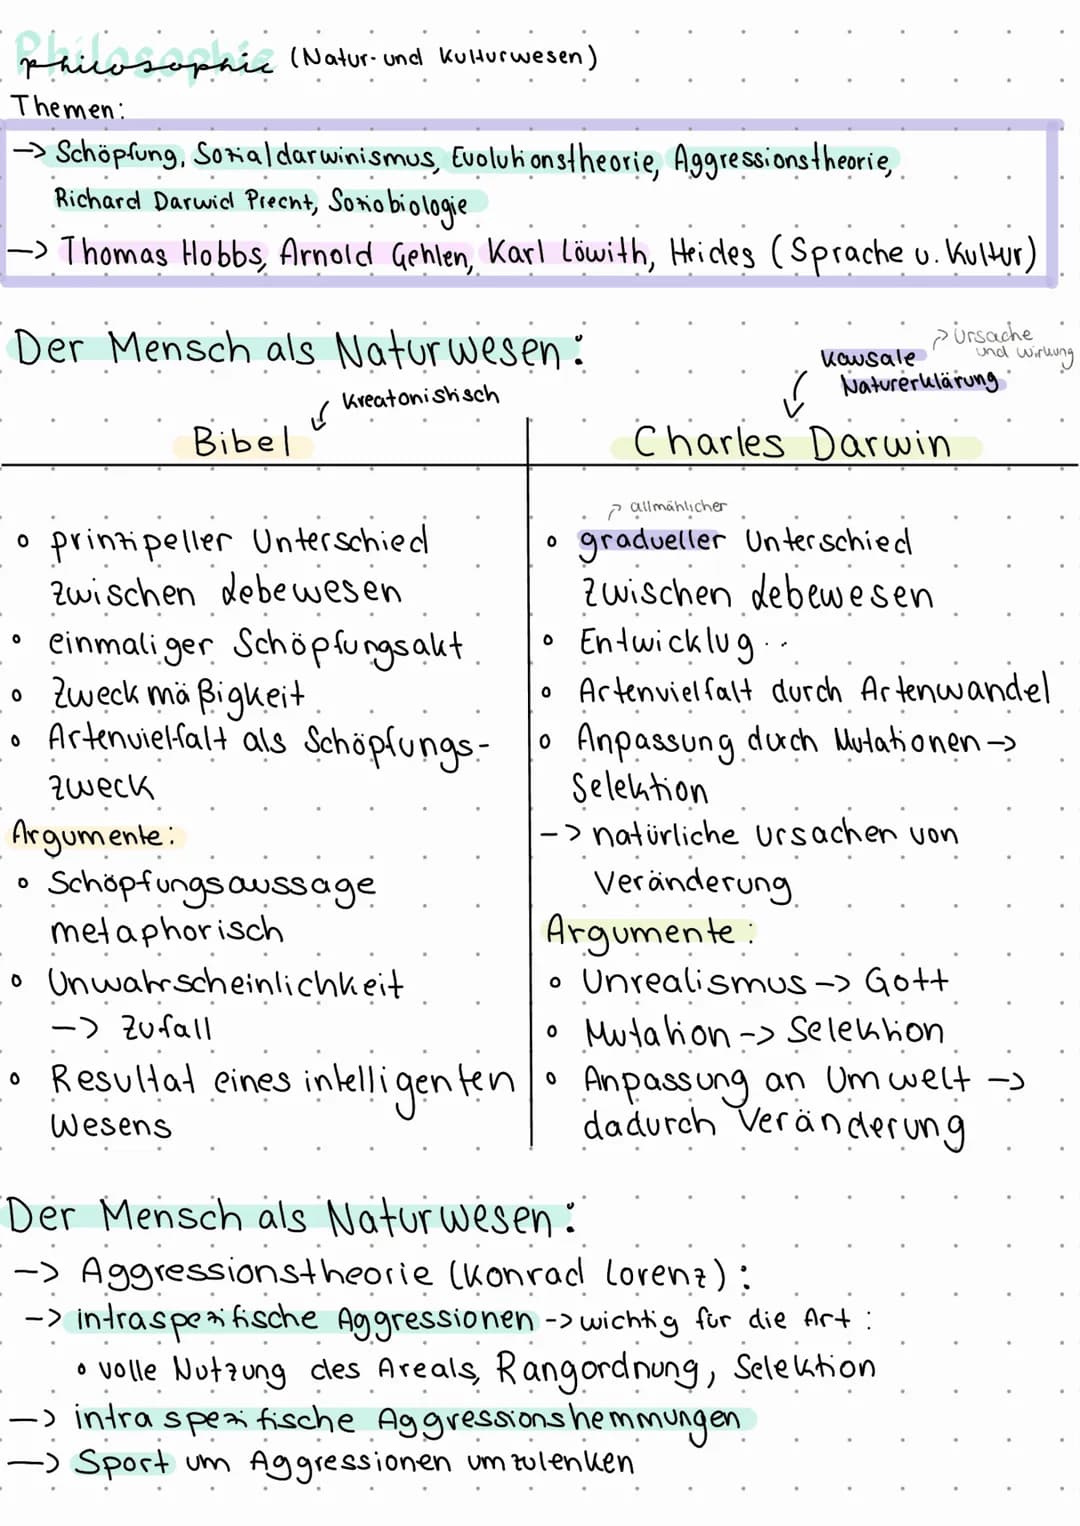 Philosophie (Natur- und Kulturwesen)
Themen:
-> Schöpfung, Sozialdarwinismus, Evolutionstheorie, Aggressionstheorie,
Richard Darwid Precht, Soziobiologie
-> Thomas Hobbs, Arnold Gehlen, Karl Löwith, Heides (Sprache u. Kultur)
Der Mensch als Naturwesen:
Ursache und Wirkung
Kausale Naturerklärung
Kreatonistisch
Bibel
Charles Darwin
• prinzipeller Unterschied
zwischen Lebewesen
• einmaliger Schöpfungsakt
• Zweckmäßigkeit
• Artenvielfalt als Schöpfungs-
zweck
Argumente:
• Schöpfungsaussage
metaphorisch
• Unwahrscheinlichkeit
-> Zufall
• Resultat eines intelligenten
Wesens
allmählicher
• gradueller Unterschied
zwischen Lebewesen
• Entwicklug..
• Artenvielfalt durch Artenwandel
• Anpassung durch Mutationen ->
Selektion
-> natürliche Ursachen von
Veränderung
Argumente:
• Unrealismus -> Gott
• Mutation -> Selektion
• Anpassung an Umwelt ->
dadurch Veränderung
Der Mensch als Naturwesen:
-> Aggressionstheorie (Konrad Lorenz):
-> intraspezifische Aggressionen -> wichtig für die Art:
• volle Nutzung des Areals, Rangordnung, Selektion
-> intraspezifische Aggressionshemmungen
-> Sport um Aggressionen umzulenken